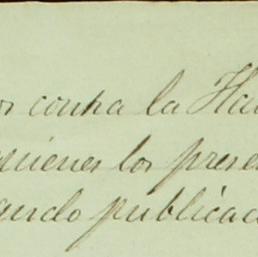 os contra la Ha
quienes los prese
ando publicad